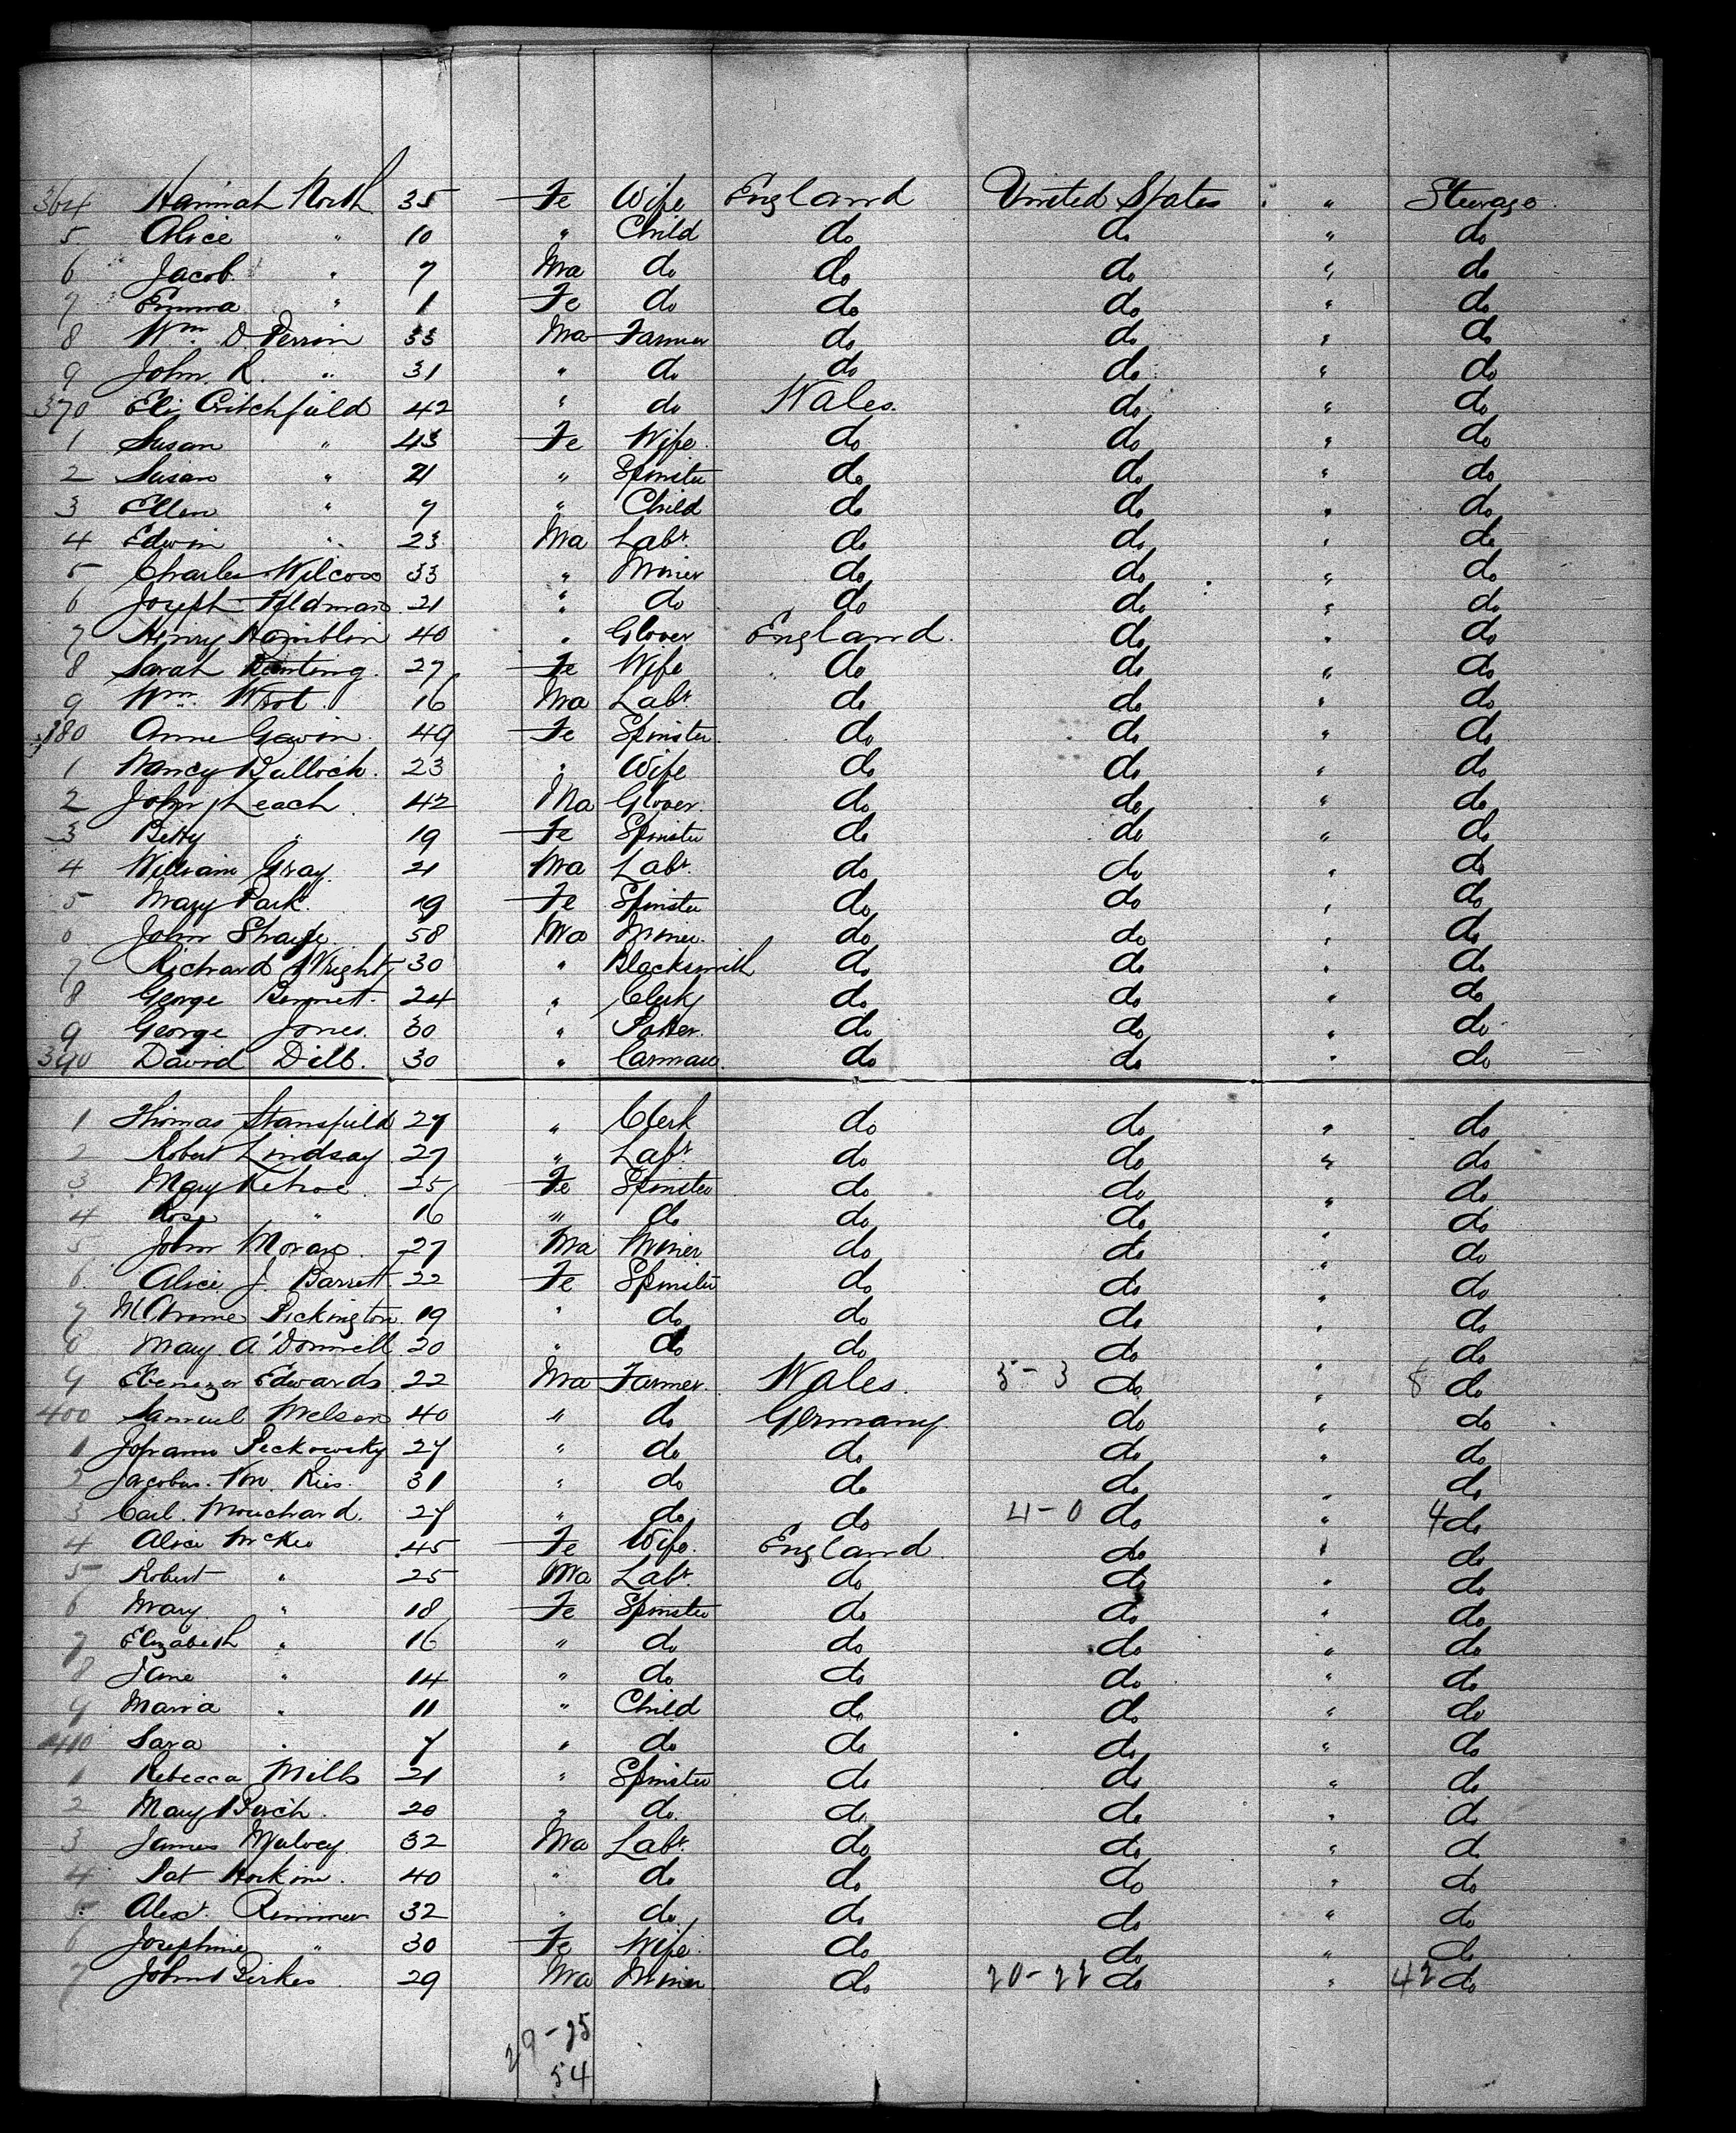 364 Hannah North 35 Fe Wife England United States " Steerage
5 Alice " 10 " Child do do " do
6 Jacob " 7 Ma do do do " do
7 Emma " 1 Fe do do do " do
8 Wm. D. Perrin 33 Ma Farmer do do " do
9 John R. " 31 " do do do " do
370 Eli Critchfield 42 " do Wales. do " do
1 Susan " 43 Fe Wife. do do " do
2 Susan " 21 " Spinster do do " do
3 Ellen " 7 " Child do do " do
4 Edwin " 23 Ma Labr. do do " do
5 Charles Wilcox 33 " Miner do do " do
6 Joseph 21 " do do do " do
7 Henry Hamblin 40 " Glover England. do " do
8 Sarah 27 Fe Wife do do " do
9 Wm. 16 Ma Labr. do do " do
380 Anne Gavin. 49 Fe Spinster. do do " do
1 Nancy Bulloch. 23 " Wife do do " do
2 John Leach 42 Ma Glover. do do " do
3 Betty " 19 Fe Spinster do do " do
4 William Gray. 21 Ma Labr. do do " do
5 Mary Park. 19 Fe Spinster do do " do
6 John Sharpe 58 Ma Miner. do do " do
7 Richard Wright 30 " Blacksmith do do " do
8 George Bennett. 24 " Clerk do do " do
9 George Jones. 30 " Potter. do do " do
390 David Dill. 30 " Carman. do do " do
1 Thomas Stansfield 27 " Clerk do do " do
2 Robert Lindsay 27 " Labr. do do " do
3 Mary Kehoe 25 Fe Spinster do do " do
4 Rose " 16 " do do do " do
5 John Moran. 27 Ma Miner do do " do
6 Alice J. Barrett 22 Fe Spinster do do " do
7 M. Anne Pickington 19 " do do do " do
8 Mary A'Donnell 20 " do do do " do
9 Ebenezer Edwards 22 Ma Farmer. Wales. 5-3 do " 8 do
400 Samuel 40 " do Germany do " do
1 Peckowsky 27 " do do do " do
2 Jacobus. Ries. 31 " do do do " do
3 Carl. Mouchard. 27 " do do 4-0 do " 4 do
4 Alice McKee 45 Fe Wife. England. do " do
5 Robert " 25 Ma Labr. do do " do
6 Mary. " 18 Fe Spinster do do " do
7 Elizabeth " 16 " do do do " do
8 Jane " 14 " do do do " do
9 Maria " 11 " Child do do " do
410 Sara " 7 " do do do " do
1 Rebecca Mills 21 " Spinster do do " do
2 Mary Birch. 20 " do. do do " do
3 James Mulvey 32 Ma Labr. do do " do
4 Pat 40 " do do do " do
5 Alexr. Rimmer 32 " do do do " do
6 Josephine " 30 Fe Wife. do do " do
7 John Birkes 29 Ma Miner do 20-22 do " 42 do
29-25
54